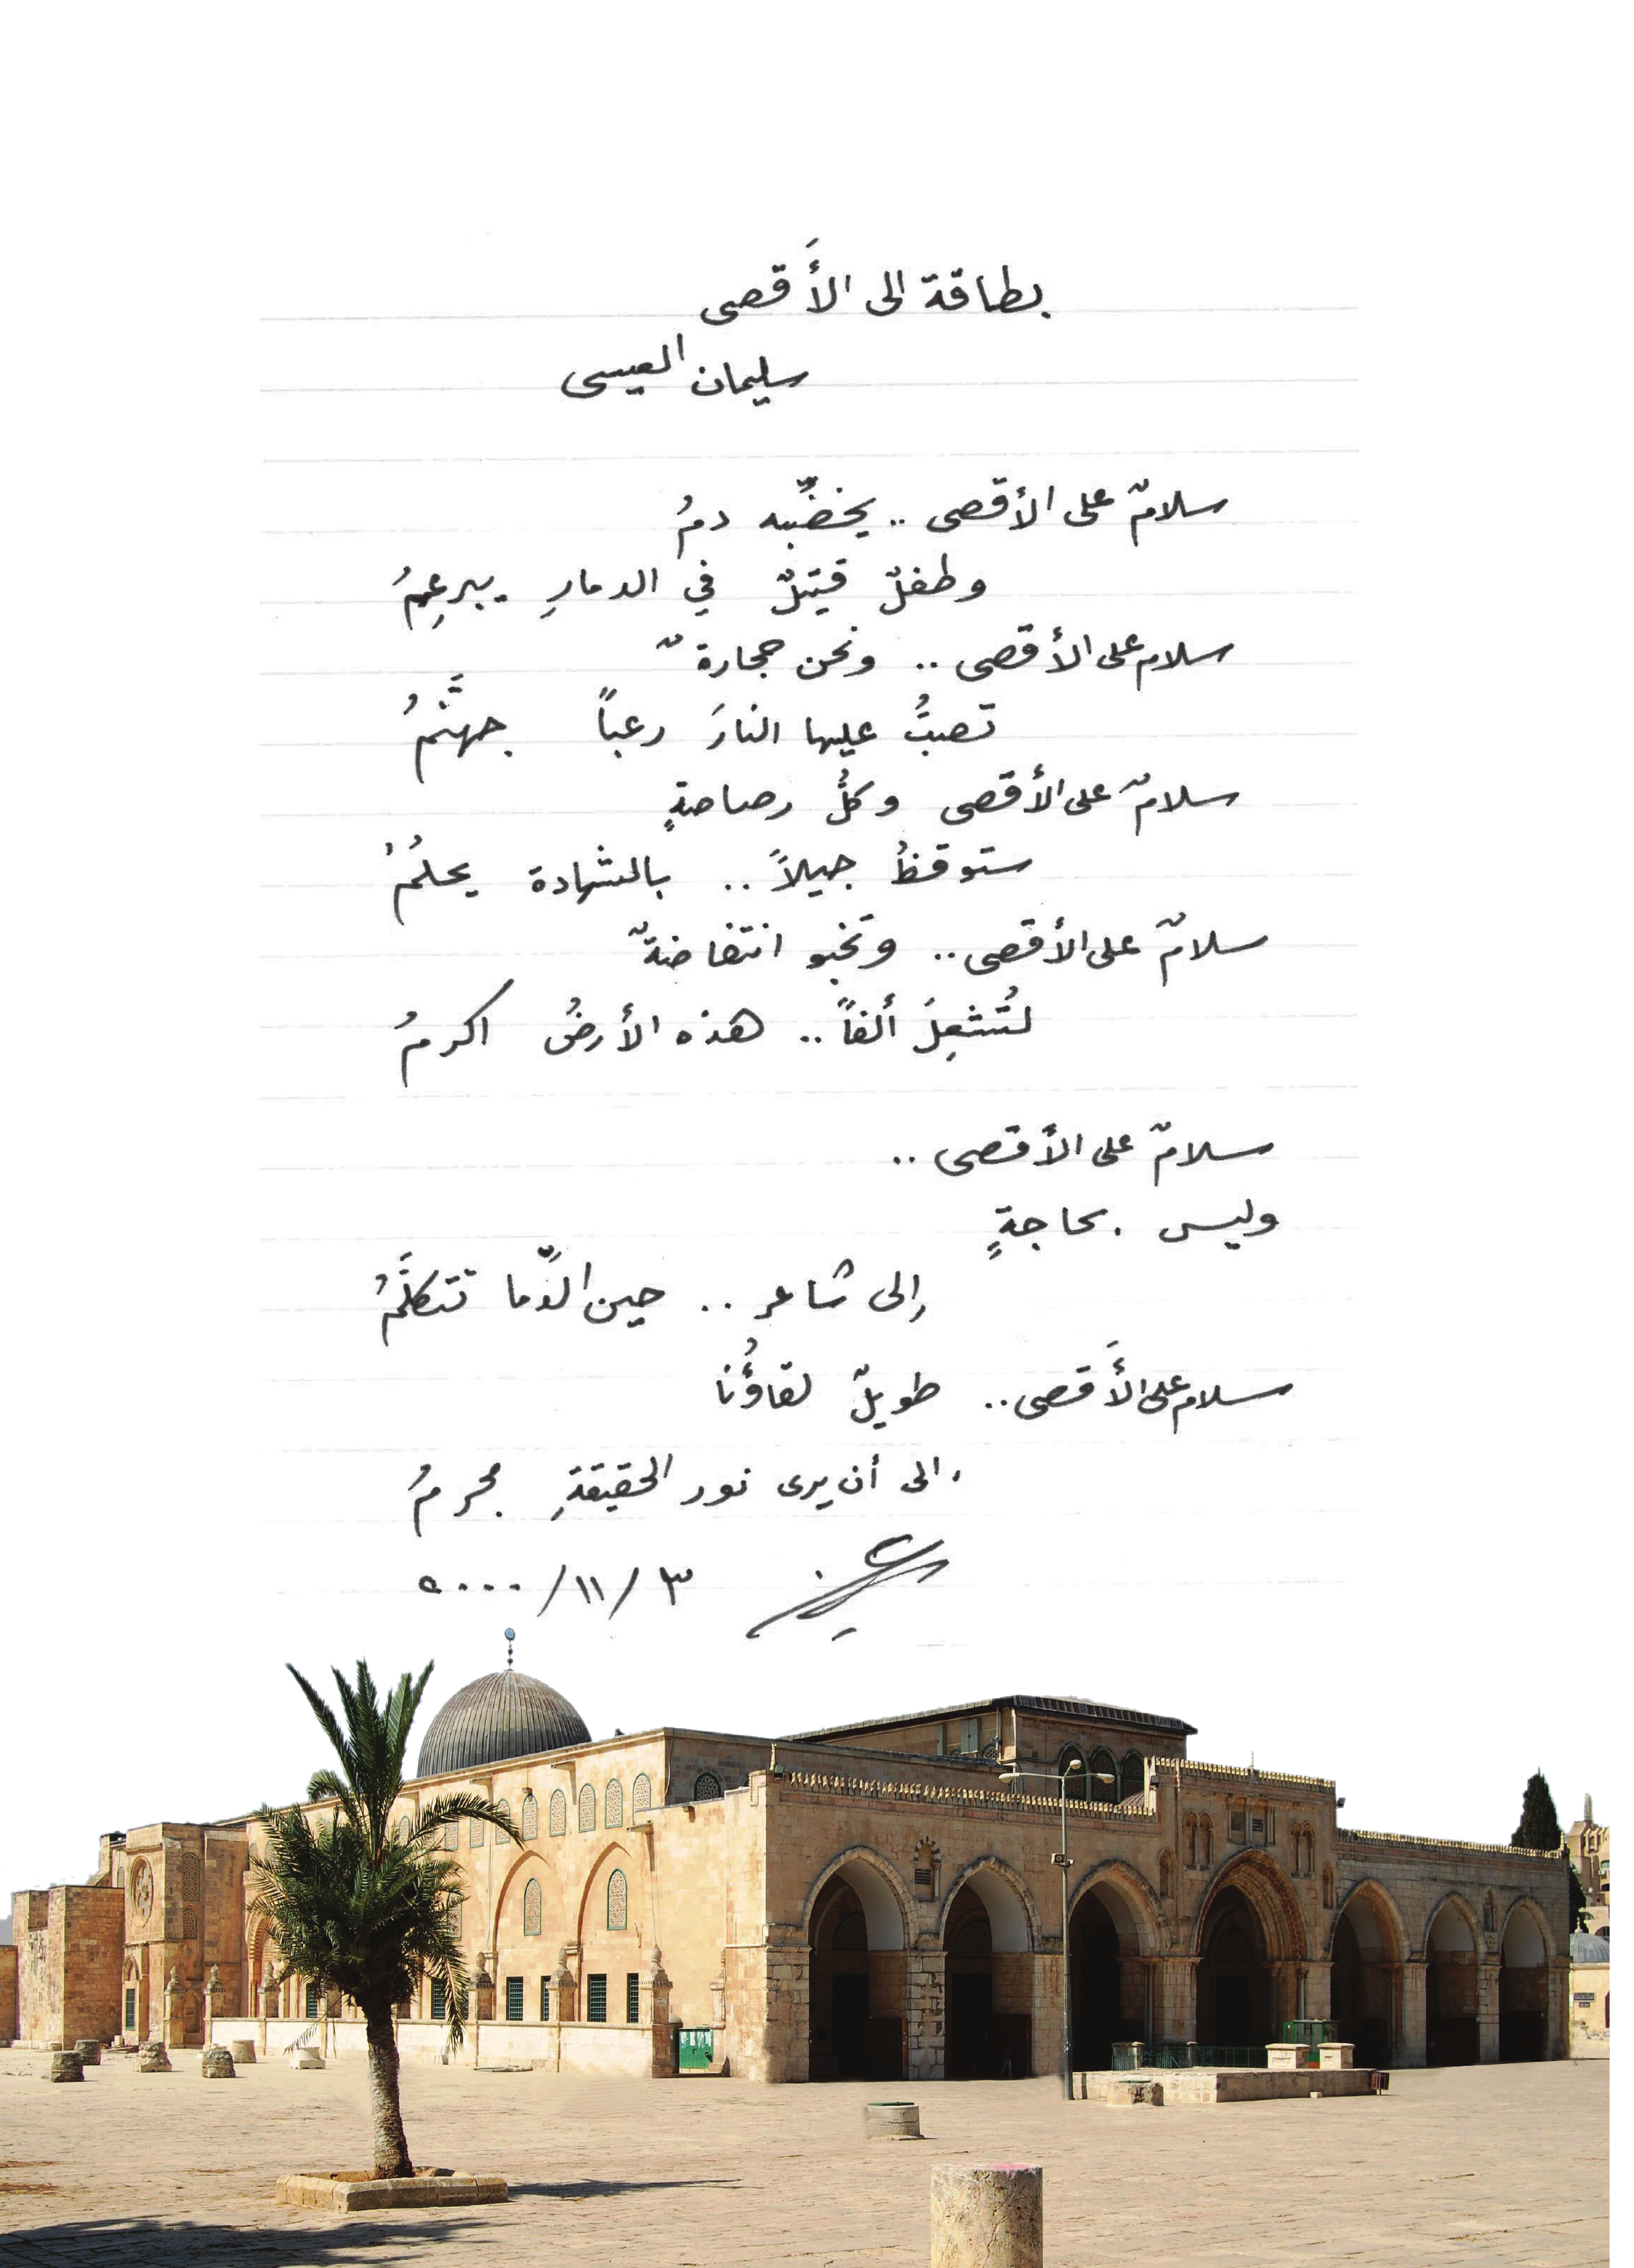 بطاقة الى الأَقصى
سليمان العيسى
سلامٌ على الأقصى .. يخضِّبه دمُ
وطفلٌ قتيلٌ في الدمارِ يبرعِمُ
سلام على الأقصى .. ونحن حجارةٌ
تصبُّ عليها النارَ رعباً جهنَّمُ
سلامٌ على الأقصى وكلُّ رصاصةٍ
ستوقظُ جيلاً .. بالشهادة يحلمُ
سلامٌ على الأقصى .. وتخبو انتفاضةٌ
لتُشعِلَ ألفاً .. هذه الأرضُ اكرمُ
سلامٌ على الأقصى ..
وليس بحاجةٍ
إلى شاعر .. حين الدِّما تتكلَّمُ
سلام على الأَقصى .. طويلٌ لقاؤُنا
إلى أن يرى نور الحقيقةِ مجرمُ
٣ / ١١ / ٢٠٠٠